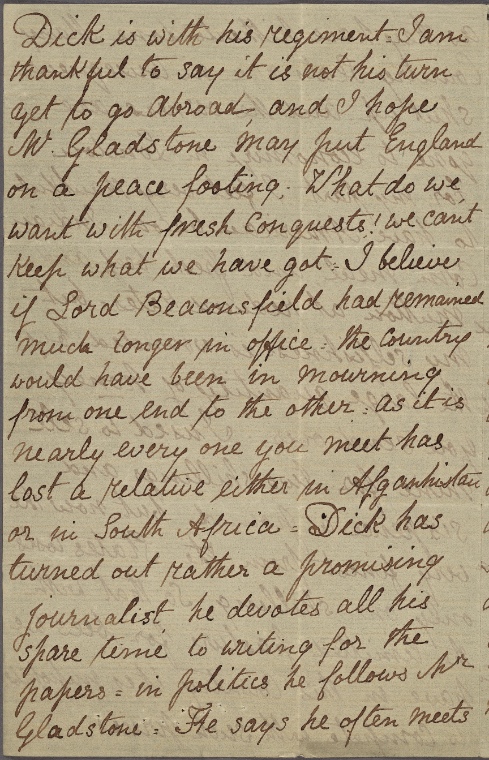 Dick is with his regiment = I am
thankful to say it is not his turn
yet to go abroad, and I hope
Mr. Gladstone may put England
on a peace footing. What do we
want with fresh Conquests! we cant
keep what we have got = I believe
if Lord Beaconsfield had remained
much longer in office = the country
would have been in mourning
from one end to the other = as it is
nearly every one you meet has
lost a relative either in Afganhistan
or in South Africa = Dick has
turned out rather a promising
journalist he devotes all his
spare time to writing for the
papers = in politics he follows Mr
Gladstone = He says he often meets